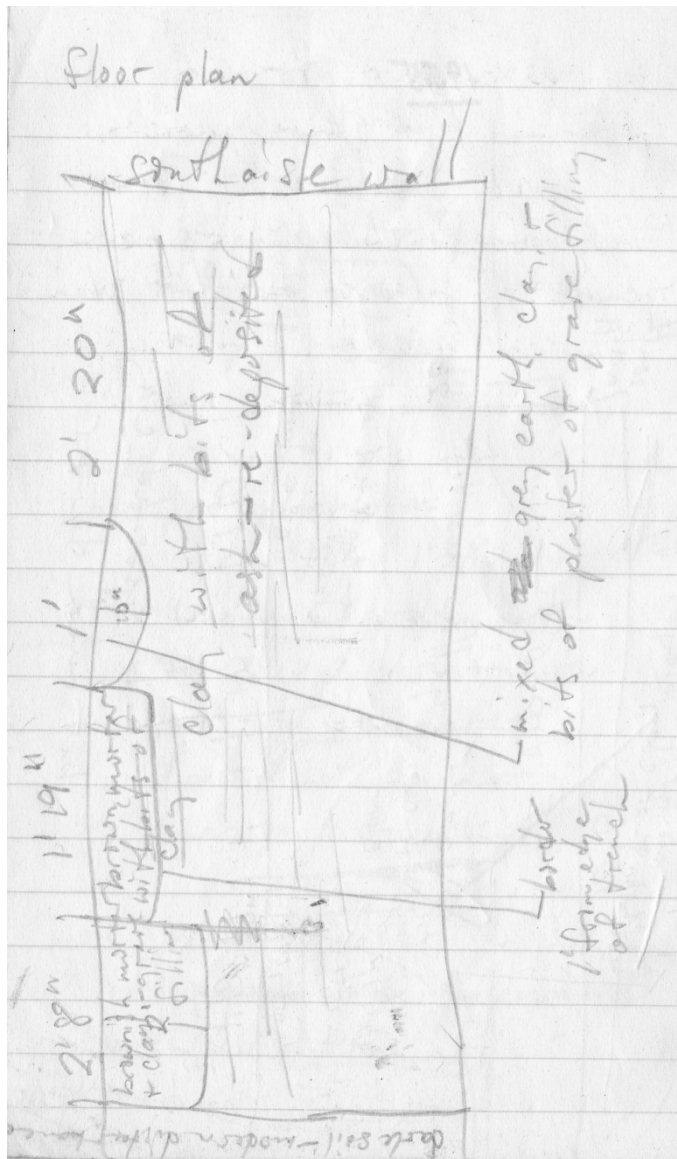 floor plan
south aisle wall
2' 20"
1'
10"
1' 19"
2' 80"
clay with bits of
ash - re-deposited
brown mortar
with bits of
clay
brownish mortar
+ clay - grave
filling
mixed grey earth, clay +
bits of plaster of grave filling
border
1' from edge
of trench
dark soil - modern disturbance